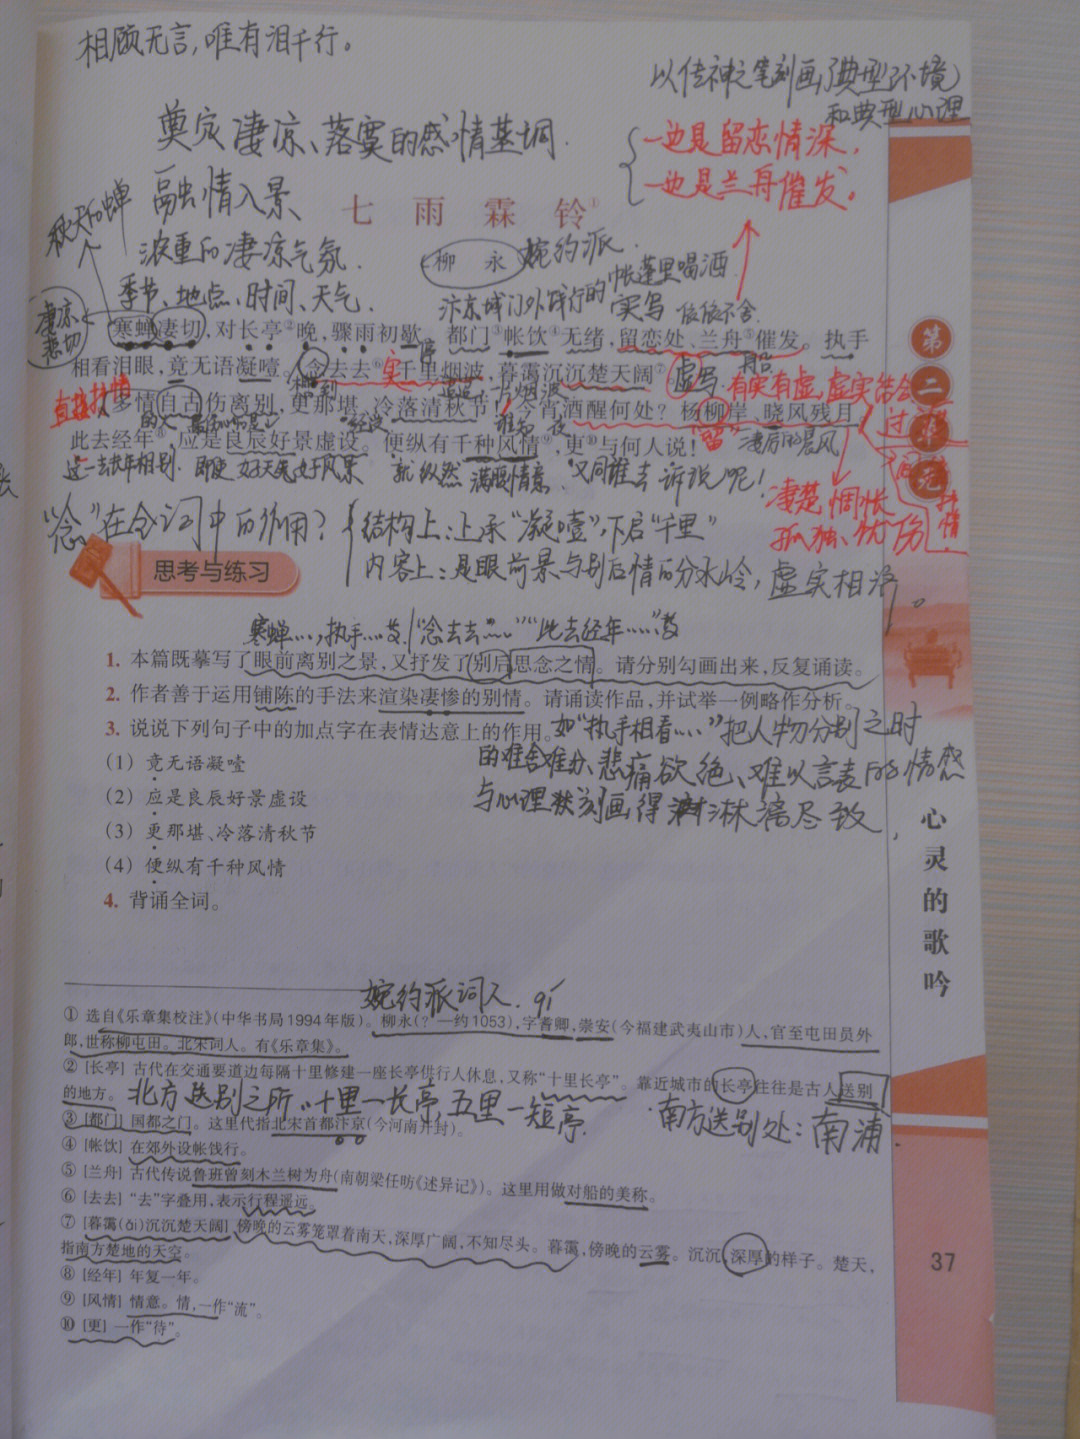 相顾无言,唯有泪千行。
以传神之笔刻画了典型环境
和典型心理
奠定凄凉、落寞的感情基调.
一边是留恋情深,
一边是兰舟催发。
秋天的蝉
融情入景
七 雨霖铃①
浓重的凄凉气氛.
柳 永
婉约派.
帐蓬里喝酒
季节、地点、时间、天气.
汴京城门外饯行的
实写 依依不舍.
凄凉
悲切
寒蝉凄切,对长亭②晚,骤雨初歇。都门③帐饮④无绪,留恋处、兰舟⑤催发。执手
停
相看泪眼,竟无语凝噎。念去去⑥千里烟波,暮霭沉沉楚天阔⑦。
实
虚写
船
有实有虚,虚实结合
直接抒情
想到
多情自古伤离别,更那堪、冷落清秋节!今宵酒醒何处?杨柳岸、晓风残月。
谁知
“留”
凄厉的晨风
此去经年⑧,应是良辰好景虚设。便纵有千种风情⑨,更⑩与何人说!
这一去长年相别.
即使
好天气好风景
就纵然
满腹情意.
又同谁去诉说呢!
凄楚惆怅
孤独、忧伤
抒情.
第二单元
“念”在全词中的作用?
结构上:上承“凝噎”,下启“千里”
内容上:是眼前景与别后情的分水岭,虚实相济。
思考与练习
寒蝉…,执手…发.“念去去……”“此去经年……”
1. 本篇既摹写了眼前离别之景,又抒发了别后思念之情。请分别勾画出来,反复诵读。
2. 作者善于运用铺陈的手法来渲染凄惨的别情。请诵读作品,并试举一例略作分析。
3. 说说下列句子中的加点字在表情达意上的作用。
如“执手相看……”把人物分别之时
的难舍难分、悲痛欲绝、难以言表的情感
与心理状刻画得淋漓尽致.
(1) 竟无语凝噎
(2) 应是良辰好景虚设
(3) 更那堪、冷落清秋节
(4) 便纵有千种风情
4. 背诵全词。
心灵的歌吟
婉约派词人.
qí
① 选自《乐章集校注》(中华书局1994年版)。柳永(?—约1053),字耆卿,崇安(今福建武夷山市)人,官至屯田员外
郎,世称柳屯田。北宋词人。有《乐章集》。
② [长亭] 古代在交通要道边每隔十里修建一座长亭供行人休息,又称“十里长亭”。靠近城市的长亭往往是古人送别
的地方。
北方送别之所,十里一长亭,五里一短亭.
南方送别处:南浦.
③ [都门] 国都之门。这里代指北宋首都汴京(今河南开封)。
④ [帐饮] 在郊外设帐饯行。
⑤ [兰舟] 古代传说鲁班曾刻木兰树为舟(南朝梁任昉《述异记》)。这里用做对船的美称。
⑥ [去去] “去”字叠用,表示行程遥远。
⑦ [暮霭(ǎi)沉沉楚天阔] 傍晚的云雾笼罩着南天,深厚广阔,不知尽头。暮霭,傍晚的云雾。沉沉,深厚的样子。楚天,
指南方楚地的天空。
⑧ [经年] 年复一年。
⑨ [风情] 情意。情,一作“流”。
⑩ [更] 一作“待”。
37